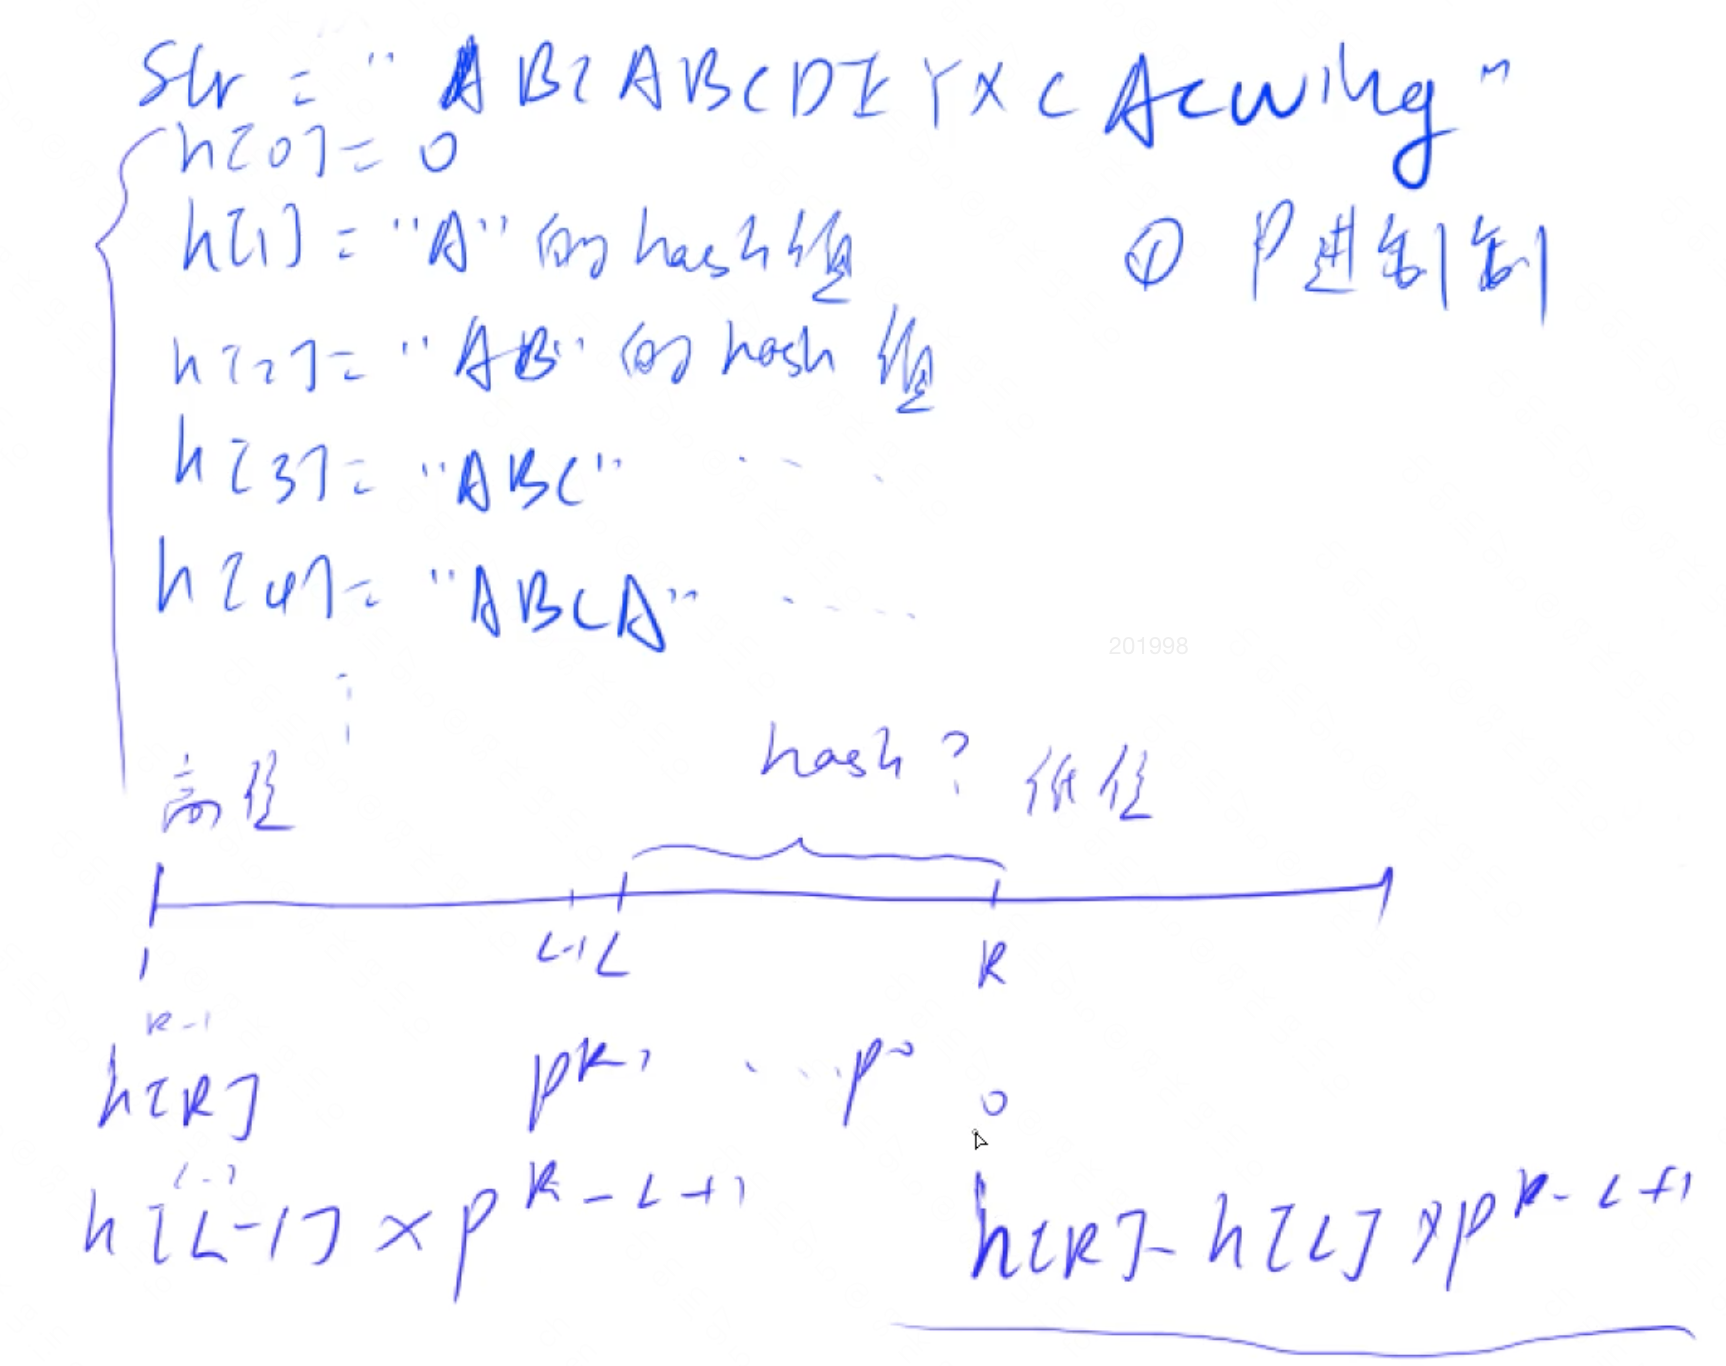 str = "ABCABCDEYXCAcwing"
h[0] = 0
h[1] = "A" 的 hash 值
① P进制
h[2] = "AB" 的 hash 值
h[3] = "ABC" ....
h[4] = "ABCA" .....
201998
hash?
高位
低位
1 L-1 L R
R-1
h[R] p^R-1 ... p^0 0
L-2
h[L-1] × p^R-L+1
h[R] - h[L] × p^R-L+1